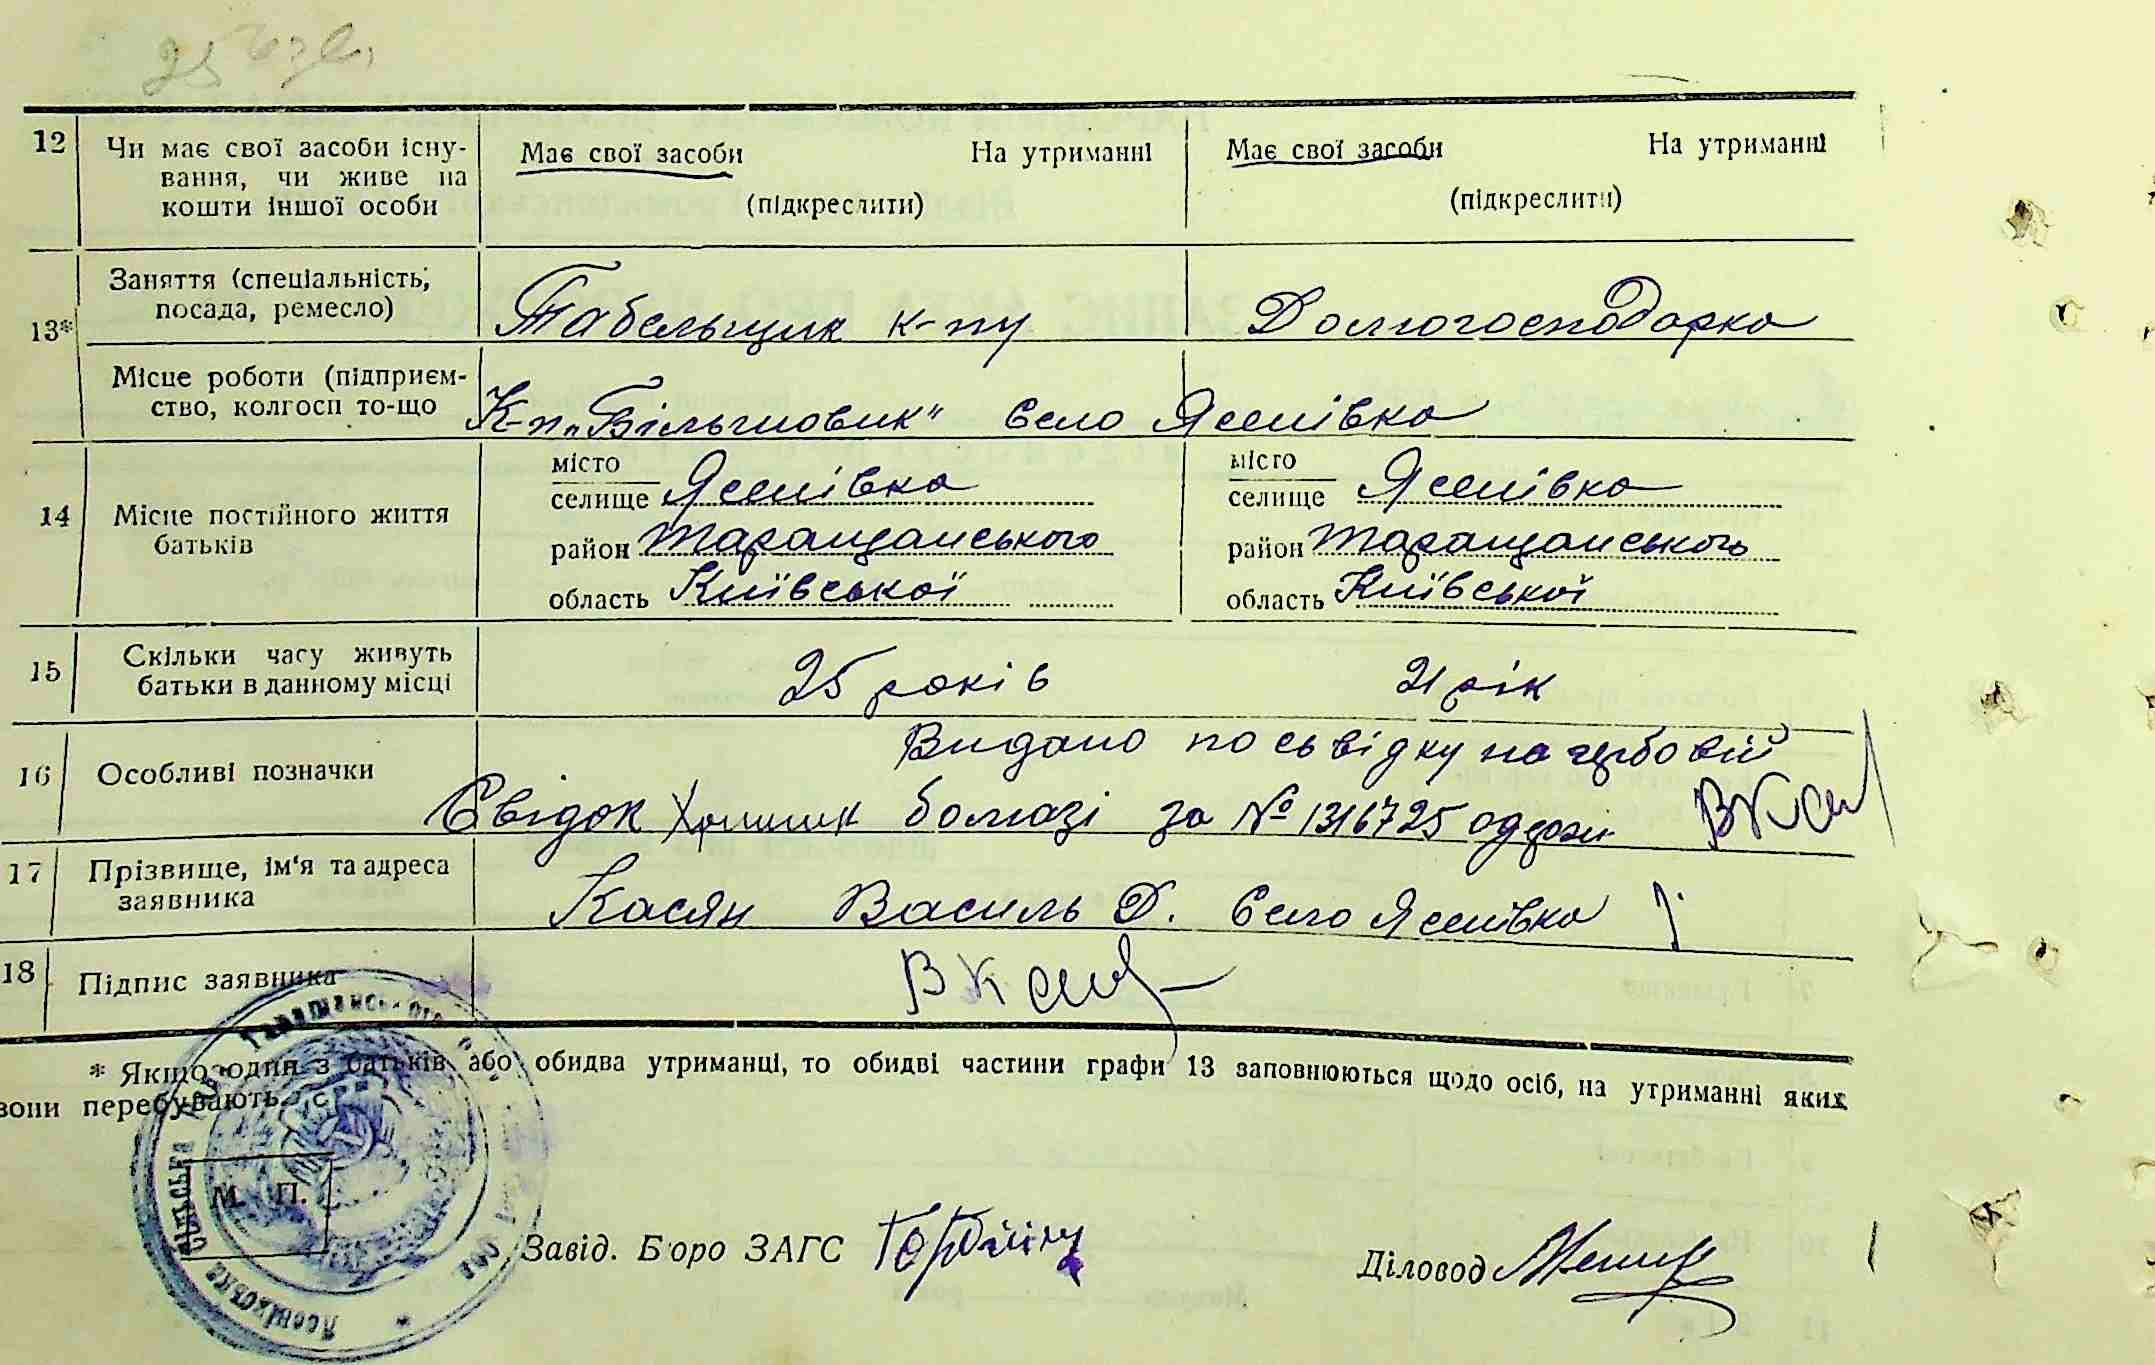 25
12 Чи має свої засоби існу- Має свої засоби На утриманні Має свої засоби На утриманні
вання, чи живе на
кошти іншої особи (підкреслити) (підкреслити)
Заняття (спеціальність,
посада, ремесло) Табельщик к-пу Домогосподарка
13*
Місце роботи (підприєм-
ство, колгосп то-що К-п „Більшовик" Село Ясенівка
місто місто
селище Ясенівка селище Ясенівка
14 Місце постійного життя
батьків район Таращанського район Таращанського
область Київської область Київської
15 Скільки часу живуть
батьки в данному місці 25 років 21 рік
Видано посьвідку на гербовій
16 Особливі позначки
Свідок бомазі за № 1316725 одержав ВКася
17 Прізвище, ім'я та адреса
заявника Касян Василь Д. Село Ясенівка
18 Підпис заявника ВКася
* Якщо один з батьків або обидва утриманці, то обидві частини графи 13 заповнюються щодо осіб, на утриманні яких
вони перебувають.
М. П.
Завід. Бюро ЗАГС
Діловод